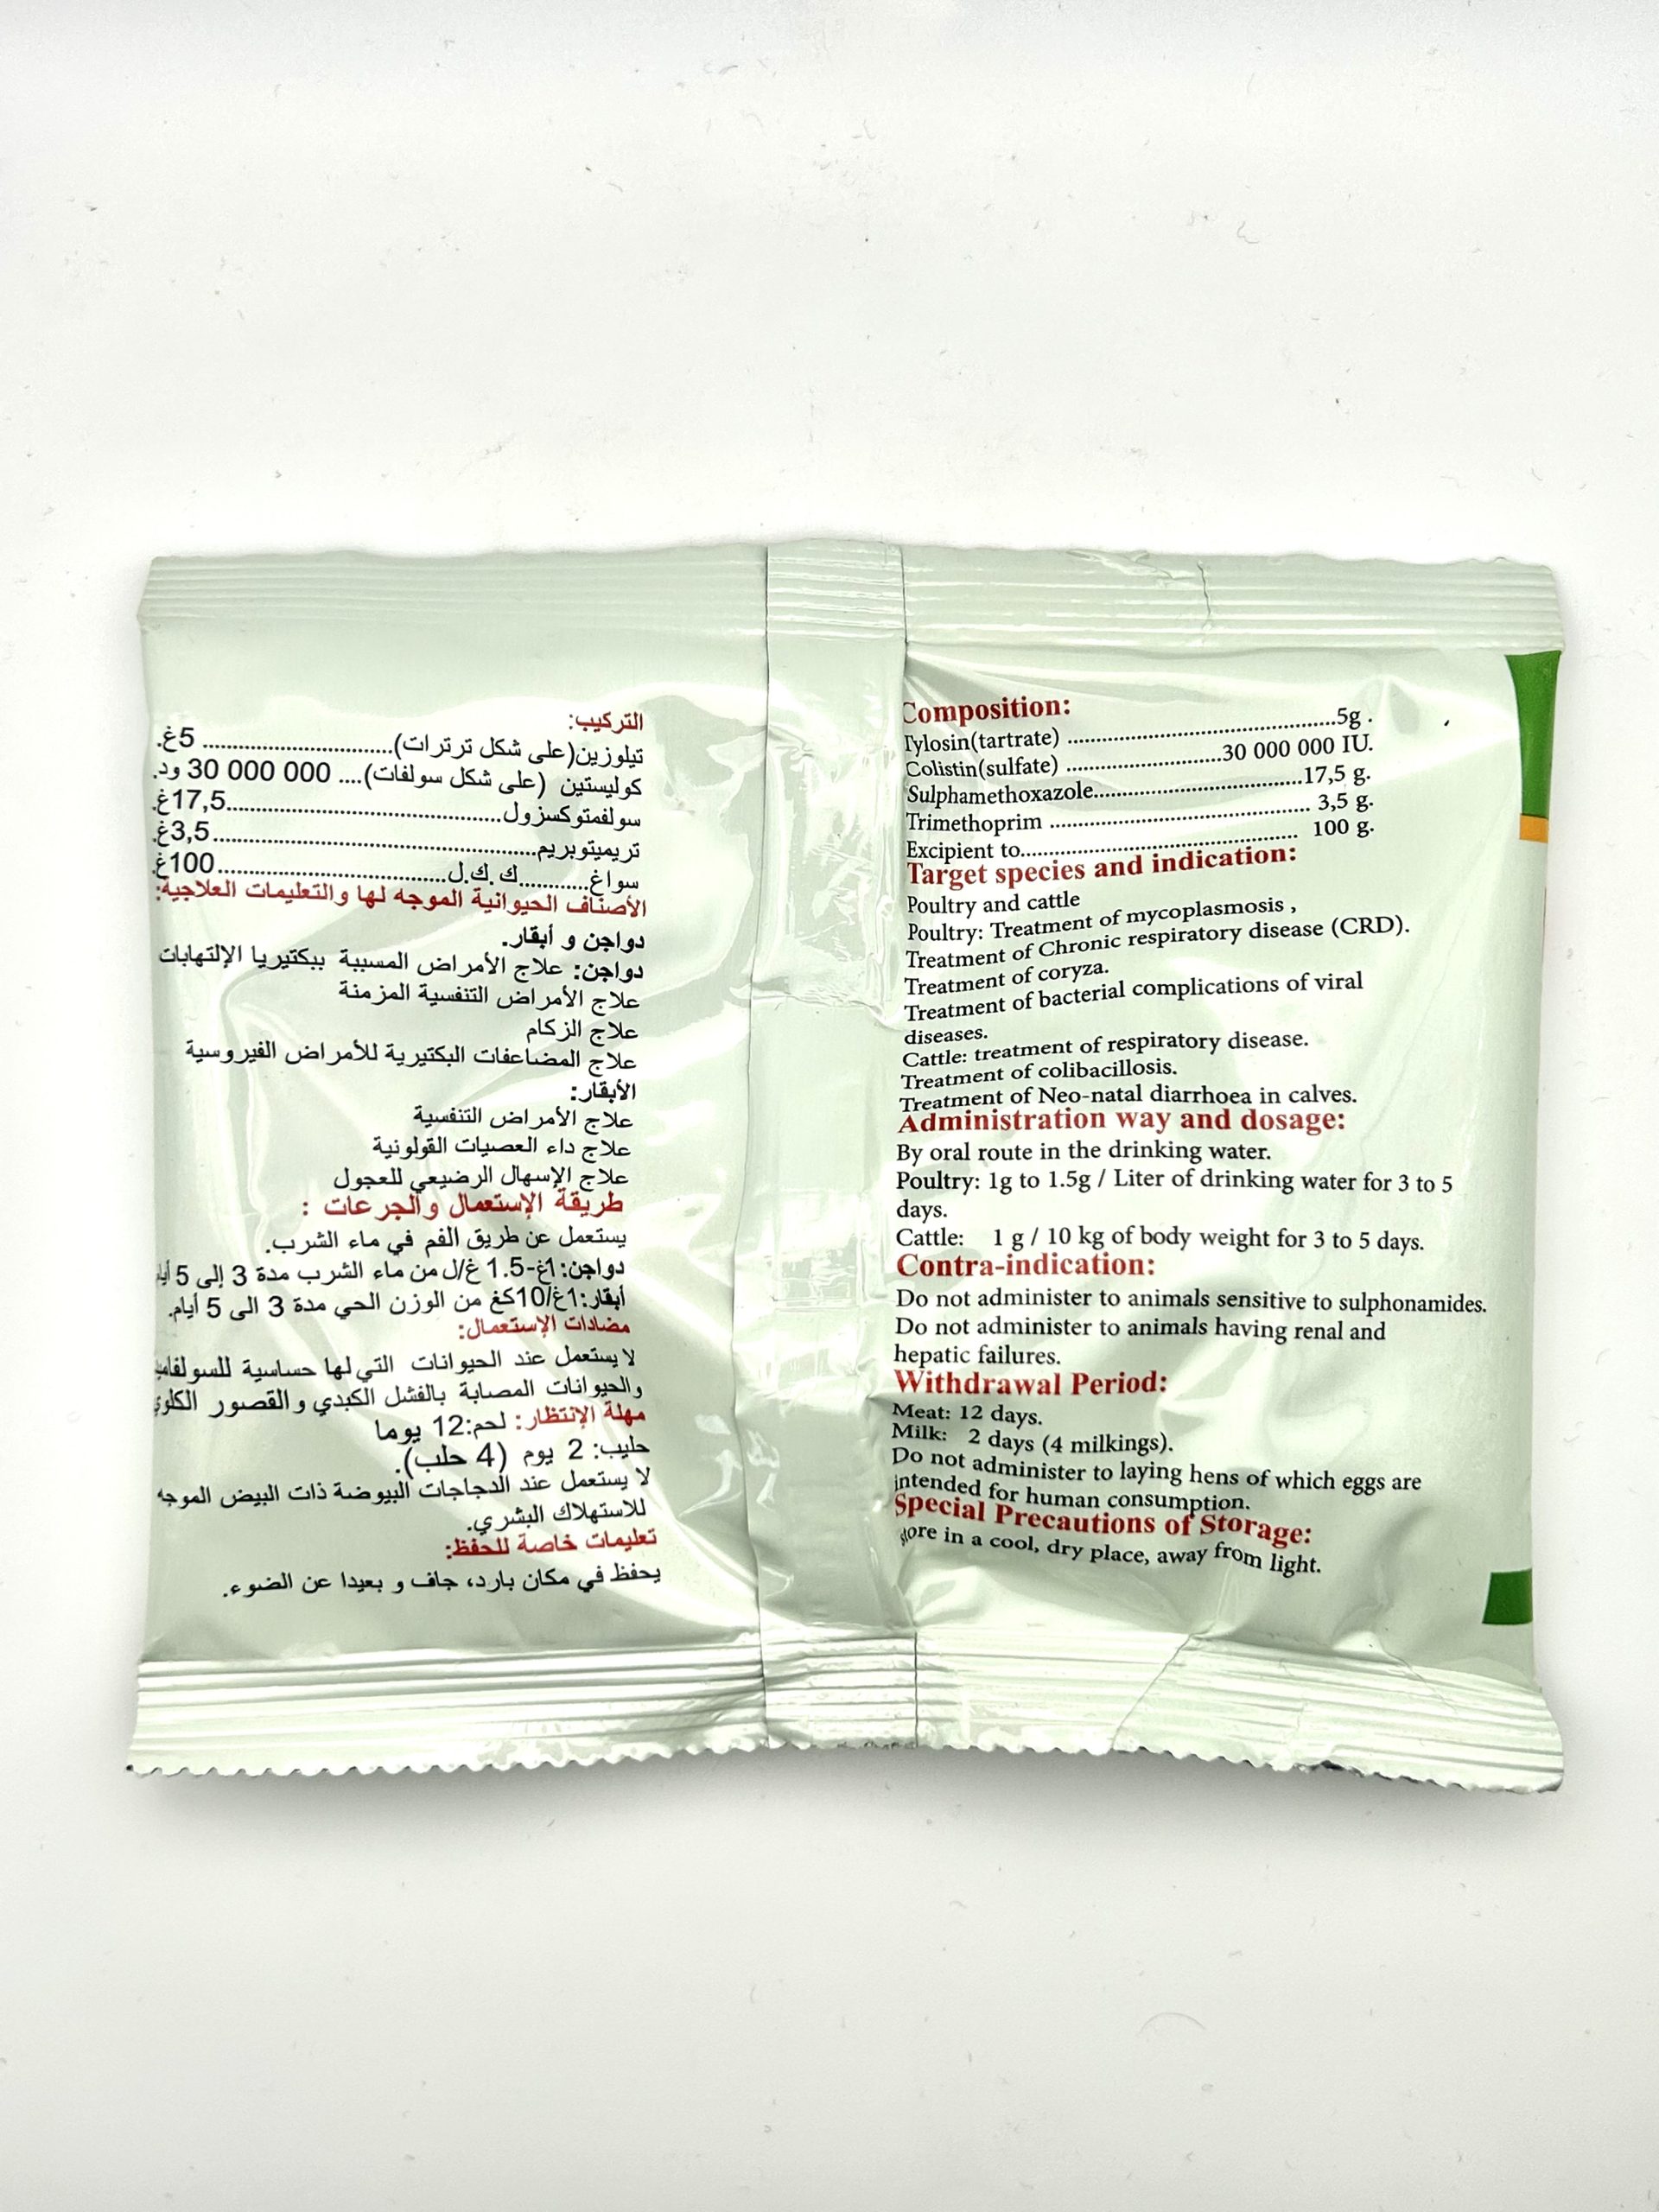 Composition:
Tylosin(tartrate) ..........................................5g .
Colistin(sulfate) ........................30 000 000 IU.
Sulphamethoxazole.................................17,5 g.
Trimethoprim ......................................... 3,5 g.
Excipient to........................................... 100 g.
Target species and indication:
Poultry and cattle
Poultry: Treatment of mycoplasmosis ,
Treatment of Chronic respiratory disease (CRD).
Treatment of coryza.
Treatment of bacterial complications of viral
diseases.
Cattle: treatment of respiratory disease.
Treatment of colibacillosis.
Treatment of Neo-natal diarrhoea in calves.
Administration way and dosage:
By oral route in the drinking water.
Poultry: 1g to 1.5g / Liter of drinking water for 3 to 5
days.
Cattle: 1 g / 10 kg of body weight for 3 to 5 days.
Contra-indication:
Do not administer to animals sensitive to sulphonamides.
Do not administer to animals having renal and
hepatic failures.
Withdrawal Period:
Meat: 12 days.
Milk: 2 days (4 milkings).
Do not administer to laying hens of which eggs are
intended for human consumption.
Special Precautions of Storage:
Store in a cool, dry place, away from light.
التركيب:
تيلوزين(على شكل ترترات)............................ 5غ.
كوليستين (على شكل سولفات).... 000 000 30 ود.
سولفمتوكسزول........................................17,5غ.
تريميتوبريم..............................................3,5غ.
سواغ..........ك .ك.ل.................................100غ.
الأصناف الحيوانية الموجه لها والتعليمات العلاجية:
دواجن و أبقار.
دواجن: علاج الأمراض المسببة ببكتيريا الإلتهابات
علاج الأمراض التنفسية المزمنة
علاج الزكام
علاج المضاعفات البكتيرية للأمراض الفيروسية
الأبقار:
علاج الأمراض التنفسية
علاج داء العصيات القولونية
علاج الإسهال الرضيعي للعجول
طريقة الإستعمال والجرعات :
يستعمل عن طريق الفم في ماء الشرب.
دواجن:1غ-1.5 غ/ل من ماء الشرب مدة 3 إلى 5
أبقار:1غ/10كغ من الوزن الحي مدة 3 الى 5 أيام.
مضادات الإستعمال:
لا يستعمل عند الحيوانات التي لها حساسية
والحيوانات المصابة بالفشل الكبدي و القصور الكلوي
مهلة الإنتظار: لحم:12 يوما
حليب: 2 يوم (4 حلب).
لا يستعمل عند الدجاجات البيوضة ذات البيض الموجه
للاستهلاك البشري.
تعليمات خاصة للحفظ:
يحفظ في مكان بارد، جاف و بعيدا عن الضوء.